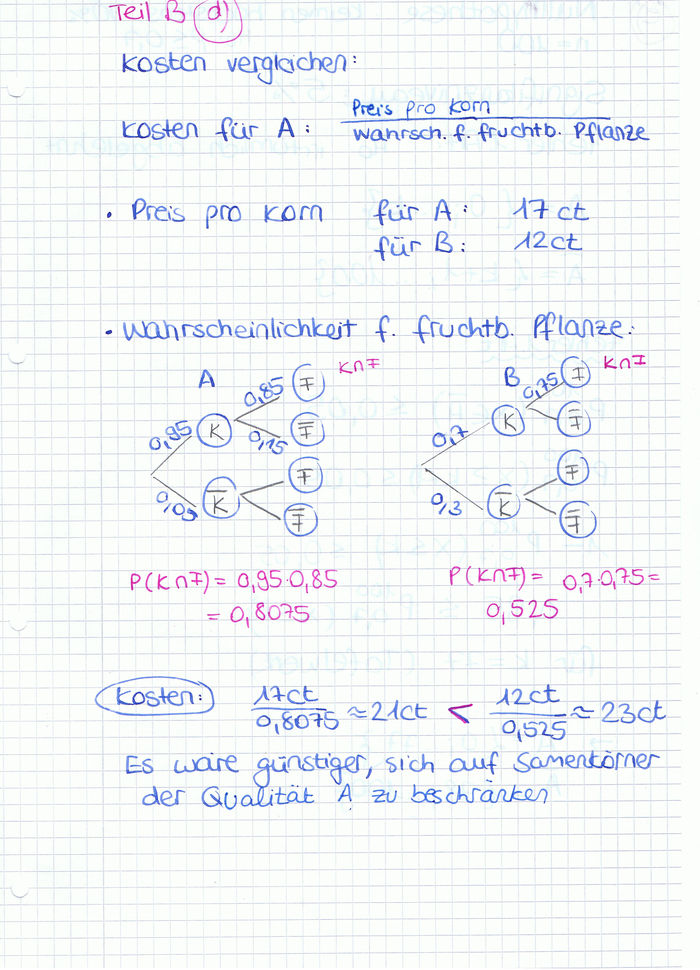 Teil B d)
Kosten vergleichen:
Kosten für A: Preis pro Korn
Wahrsch. f. fruchtb. Pflanze
• Preis pro Korn für A: 17 ct
für B: 12ct
• Wahrscheinlichkeit f. fruchtb. Pflanze:
A K∩F B K∩F
0,85 F 0,75 F
0,95 K 0,7 K
0,15 F̅ F̅
F F
0,05 K̅ 0,3 K̅
F̅ F̅
P(K∩F) = 0,95·0,85 P(K∩F) = 0,7·0,75 =
= 0,8075 0,525
Kosten: 17ct/0,8075 ≈ 21ct < 12ct/0,525 ≈ 23ct
Es wäre günstiger, sich auf Samenkörner
der Qualität A zu beschränken